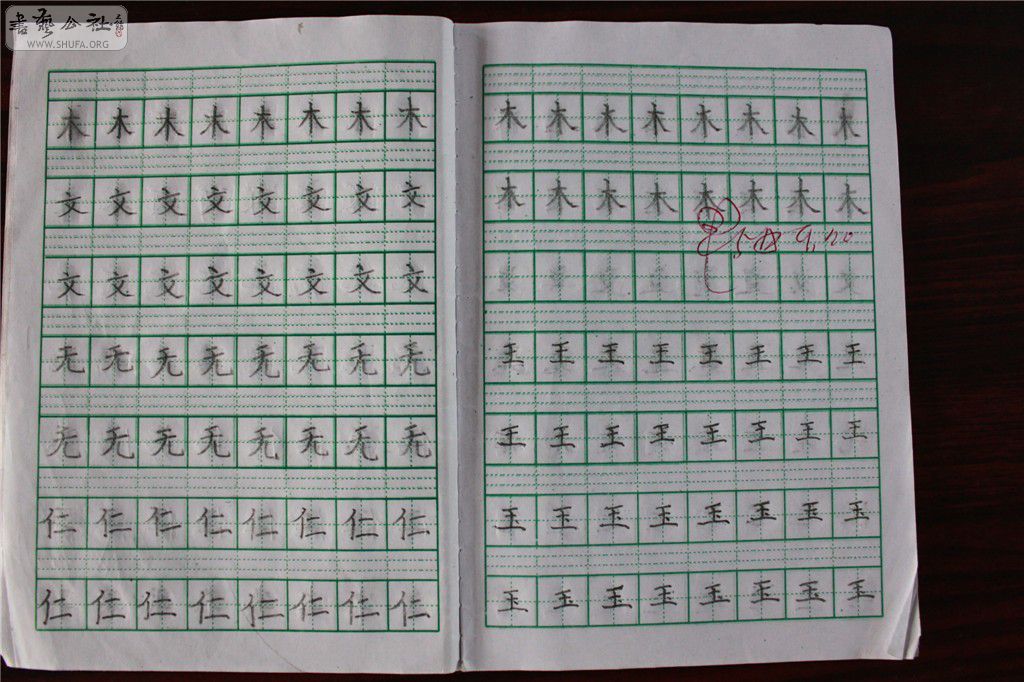 書藝公社
WWW.SHUFA.ORG
木木木木木木木木
文文文文文文文文
文文文文文文文文
无无无无无无无无
无无无无无无无无
仁仁仁仁仁仁仁仁
仁仁仁仁仁仁仁仁
木木木木木木木木
木木木木木木木木
9.20
王王王王王王王王
王王王王王王王王
玉玉玉玉玉玉玉玉
玉玉玉玉玉玉玉玉